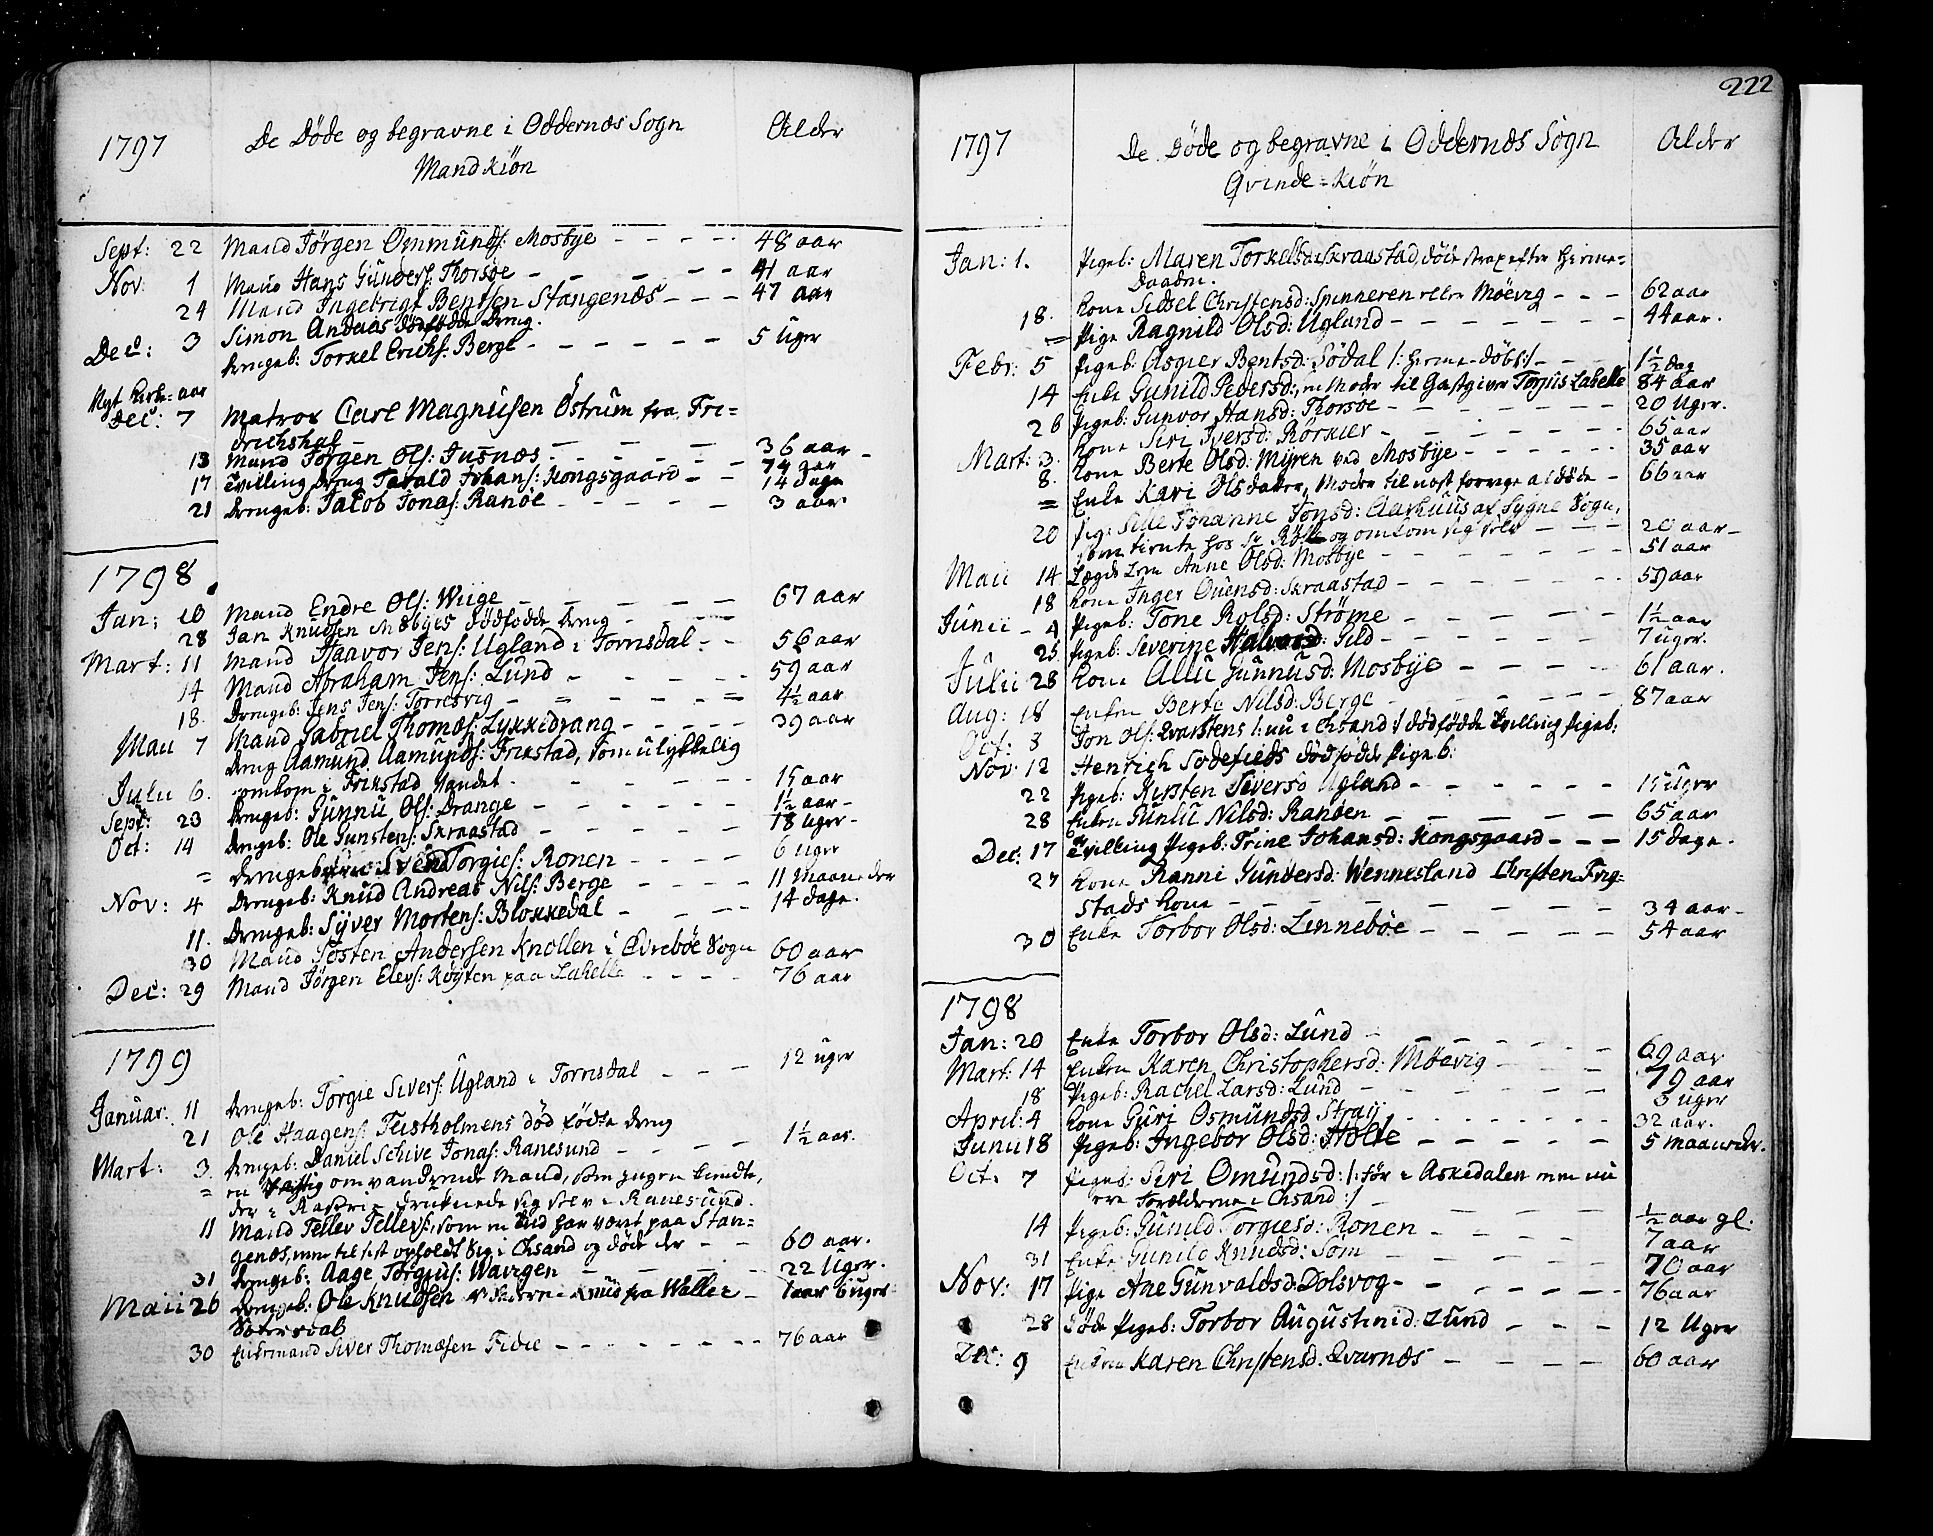 1797 De Døde og begravne i Oddernæs Sogn Alder
Mandkiøn
Sept: 22 Mand Jörgen Ommunds: Mosbye 48 aar
Nov: 1 Mand Hans Gunders: Thorsøe 41 aar
24 Mand Ingebrigt Bentsen Stangenæs 47 aar
Dec: 3 Simon Andaas dödfödde dreng.
Drengeb: Torkel Erichs: Berge 5 Uger
Nyt Kirke-aar
Dec: 7 Matros Carl Magnusen Östrum fra Fre=
drichshal 36 aar
13 Mand Jörgen Ols: Jusnæs 74 aar
17 Tvilling dreng Tarald Johans: Kongsgaard 14 dage
21 Drengeb: Jacob Jonas: Ranöe 3 aar
1798
Jan: 10 Mand Endre Ols: Wiige 67 aar
28 Jan Knudsen Mæbyes dödfödde dreng
Mart: 11 Mand Haavor Jens: Ugland i Tornsdal 56 aar
14 Mand Abraham Jens: Lund 59 aar
18. Drengeb: Jens Jens: Torresvig 4½ aar
Maii 7 Mand Gabriel Thomæs: Lykkedrang 39 aar
Dreng Aamund Aamunds: Frikstad, som ulykkelig
Julii 6. omkom i Frikstad Vandet 15 aar
Sept: 23 Drengeb: Gunnu Ols: Drange 1½ aar
Oct: 14 Drengeb: Ole Gunstens: Skraastad 18 uger
= Drengeb Svend Torgies: Ronen 6 uger
Nov: 4 Drengeb: Knud Andreas Nils: Berge 11 Maaneder
11. Drengeb: Syver Mortens: Blokkedal 14 dage.
30 Mand Tosten Andersen Knollen i Øvrebøe Sogn 60 aar
Dec: 29 Mand Jörgen Elevs: Köyten paa Lahelle 76 aar
1799
Januar: 11 Drengeb: Torgie Sivers: Ugland i Tornsdal 12 uger
21 Ole Haagens: Teistholmens död födte dreng
Mart: 3. Drengeb: Daniel Schive Jonas: Ranesund 1½ aar.
= en omvandrende Mand, som ingen kiendte,
der i druknede sig selv i Ranesund.
11 Mand Tellev Tellevs:, som en tid har været paa Stan=
genæs, men til sist opholdt sig i Chsand og døde der 60 aar.
31 Drengeb: Aage Torgius: Wavegen 22 Uger.
Maii 26 Drengeb: Ole Knudsen fra Walle i 1 aar 6 uger
Setersdal
30 Enkemand Siver Thomæsen Fidie 76 aar
222
1797 De Døde og begravne i Oddernæs Sogn Alder
Qvinde-kiøn
Jan: 1. Pigeb: Maren Torkelsd: Skraastad, döde strax efter hieme=
daaben.
18. Kone Sidsel Christensd: Spinneren eller Möevig 62 aar
= Pige Ragnild Olsd: Ugland 44 aar.
Febr: 5 Pigeb: Asgier Bentsd: Södal /: hieme-döbt :/ 1½ dag
14 Enke Gunild Pedersd:, en Moder til Gastgiver Torjus Lahelle 84 aar
26 Pigeb: Gunvor Hansd: Thorsöe 20 Uger.
Mart: 3. Kone Siri Iversd: Rörkier 65 aar
8. Kone Berte Olsd: Myren ved Mosbye 35 aar
= Enke Kari Olsdatter, Moder til næst forrige afdöde 66 aar
20 Pige Sille Johanne Jonsd: Aarhuus af Sygne Sogn,
som tiente hos Sr og omkom sig selv 20 aar
Maii 14 Lægds Lem Anne Olsd: Mosbye 51 aar
18 Kone Inger Ouensd: Skraastad 59 aar
Junii 4 Pigeb: Tone Rolsd: Ströme 1½ aar
25 Pigeb: Severine Halvord: Gild 7 uger.
Julii 28 Kone Allu Gunnusd: Mosbye 61 aar.
Aug: 18 Enken Berte Nilsd: Berge 87 aar
Oct: 3 Jon Ols: Qvarstens /: nu i Chsand :/ dödfödde tvilling pigeb:
Nov: 12 Henrich Södefieds dödfödde Pigeb:
22 Pigeb: Kirsten Siversd Ugland 15 Uger
28 Enken Gunlu Nilsd: Ranöen 65 aar
Dec: 17 Tvilling Pigeb: Trine Johansd: Kongsgaard 15 dage.
27 Kone Ranni Gundersd: Wennesland Christen Frig=
stads Kone 34 aar
30 Enke Torbor Olsd: Lennebøe 54 aar
1798
Jan: 20 Enke Torbor Olsd: Lund 69 aar
Mart: 14 Enken Karen Christophersd: Möevig 79 aar
18 Pigeb: Rachel Larsd: Lund 3 uger
April: 4 Kone Guri Osmundsd Straij 32 aar.
Junii 18 Pigeb: Ingebor Olsd: Holte 5 maaneder.
Oct: 7 Pigeb: Siri Omundsd: /: för i Askedalen men nu
ere Forældrene i Chsand :/ ½ aar gl.
14 Pigeb: Gunild Torgiesd: Ronen 7 aar
31 Enke Gunild Knudsd: Som 70 aar
Nov: 17 Pige Ane Gunvaldsd: Dolsvog 76 aar
28 Döde Pigeb: Torbor Augustinid: Lund 12 Uger
Dec: 9 Enken Karen Christensd. Qvarnæs 60 aar